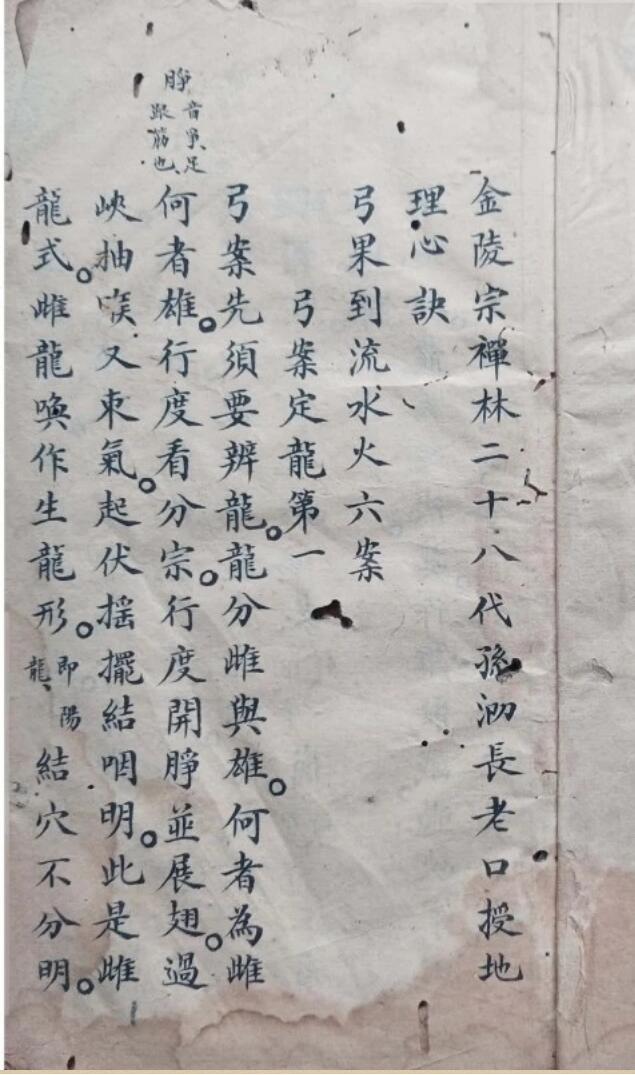 金陵宗禪林二十八代孫泐長老口授地
理心訣
弓果到流水火六案
弓案定龍第一
弓案先須要辨龍。龍分雌與雄。何者為雌
何者雄。行度看分宗。行度開脝並展翅。過
峽抽 又束氣。起伏摇擺結咽明。此是雌
龍式。雌龍喚作生龍形。即陽龍 結穴不分明。
脝音爭足
跟筋也